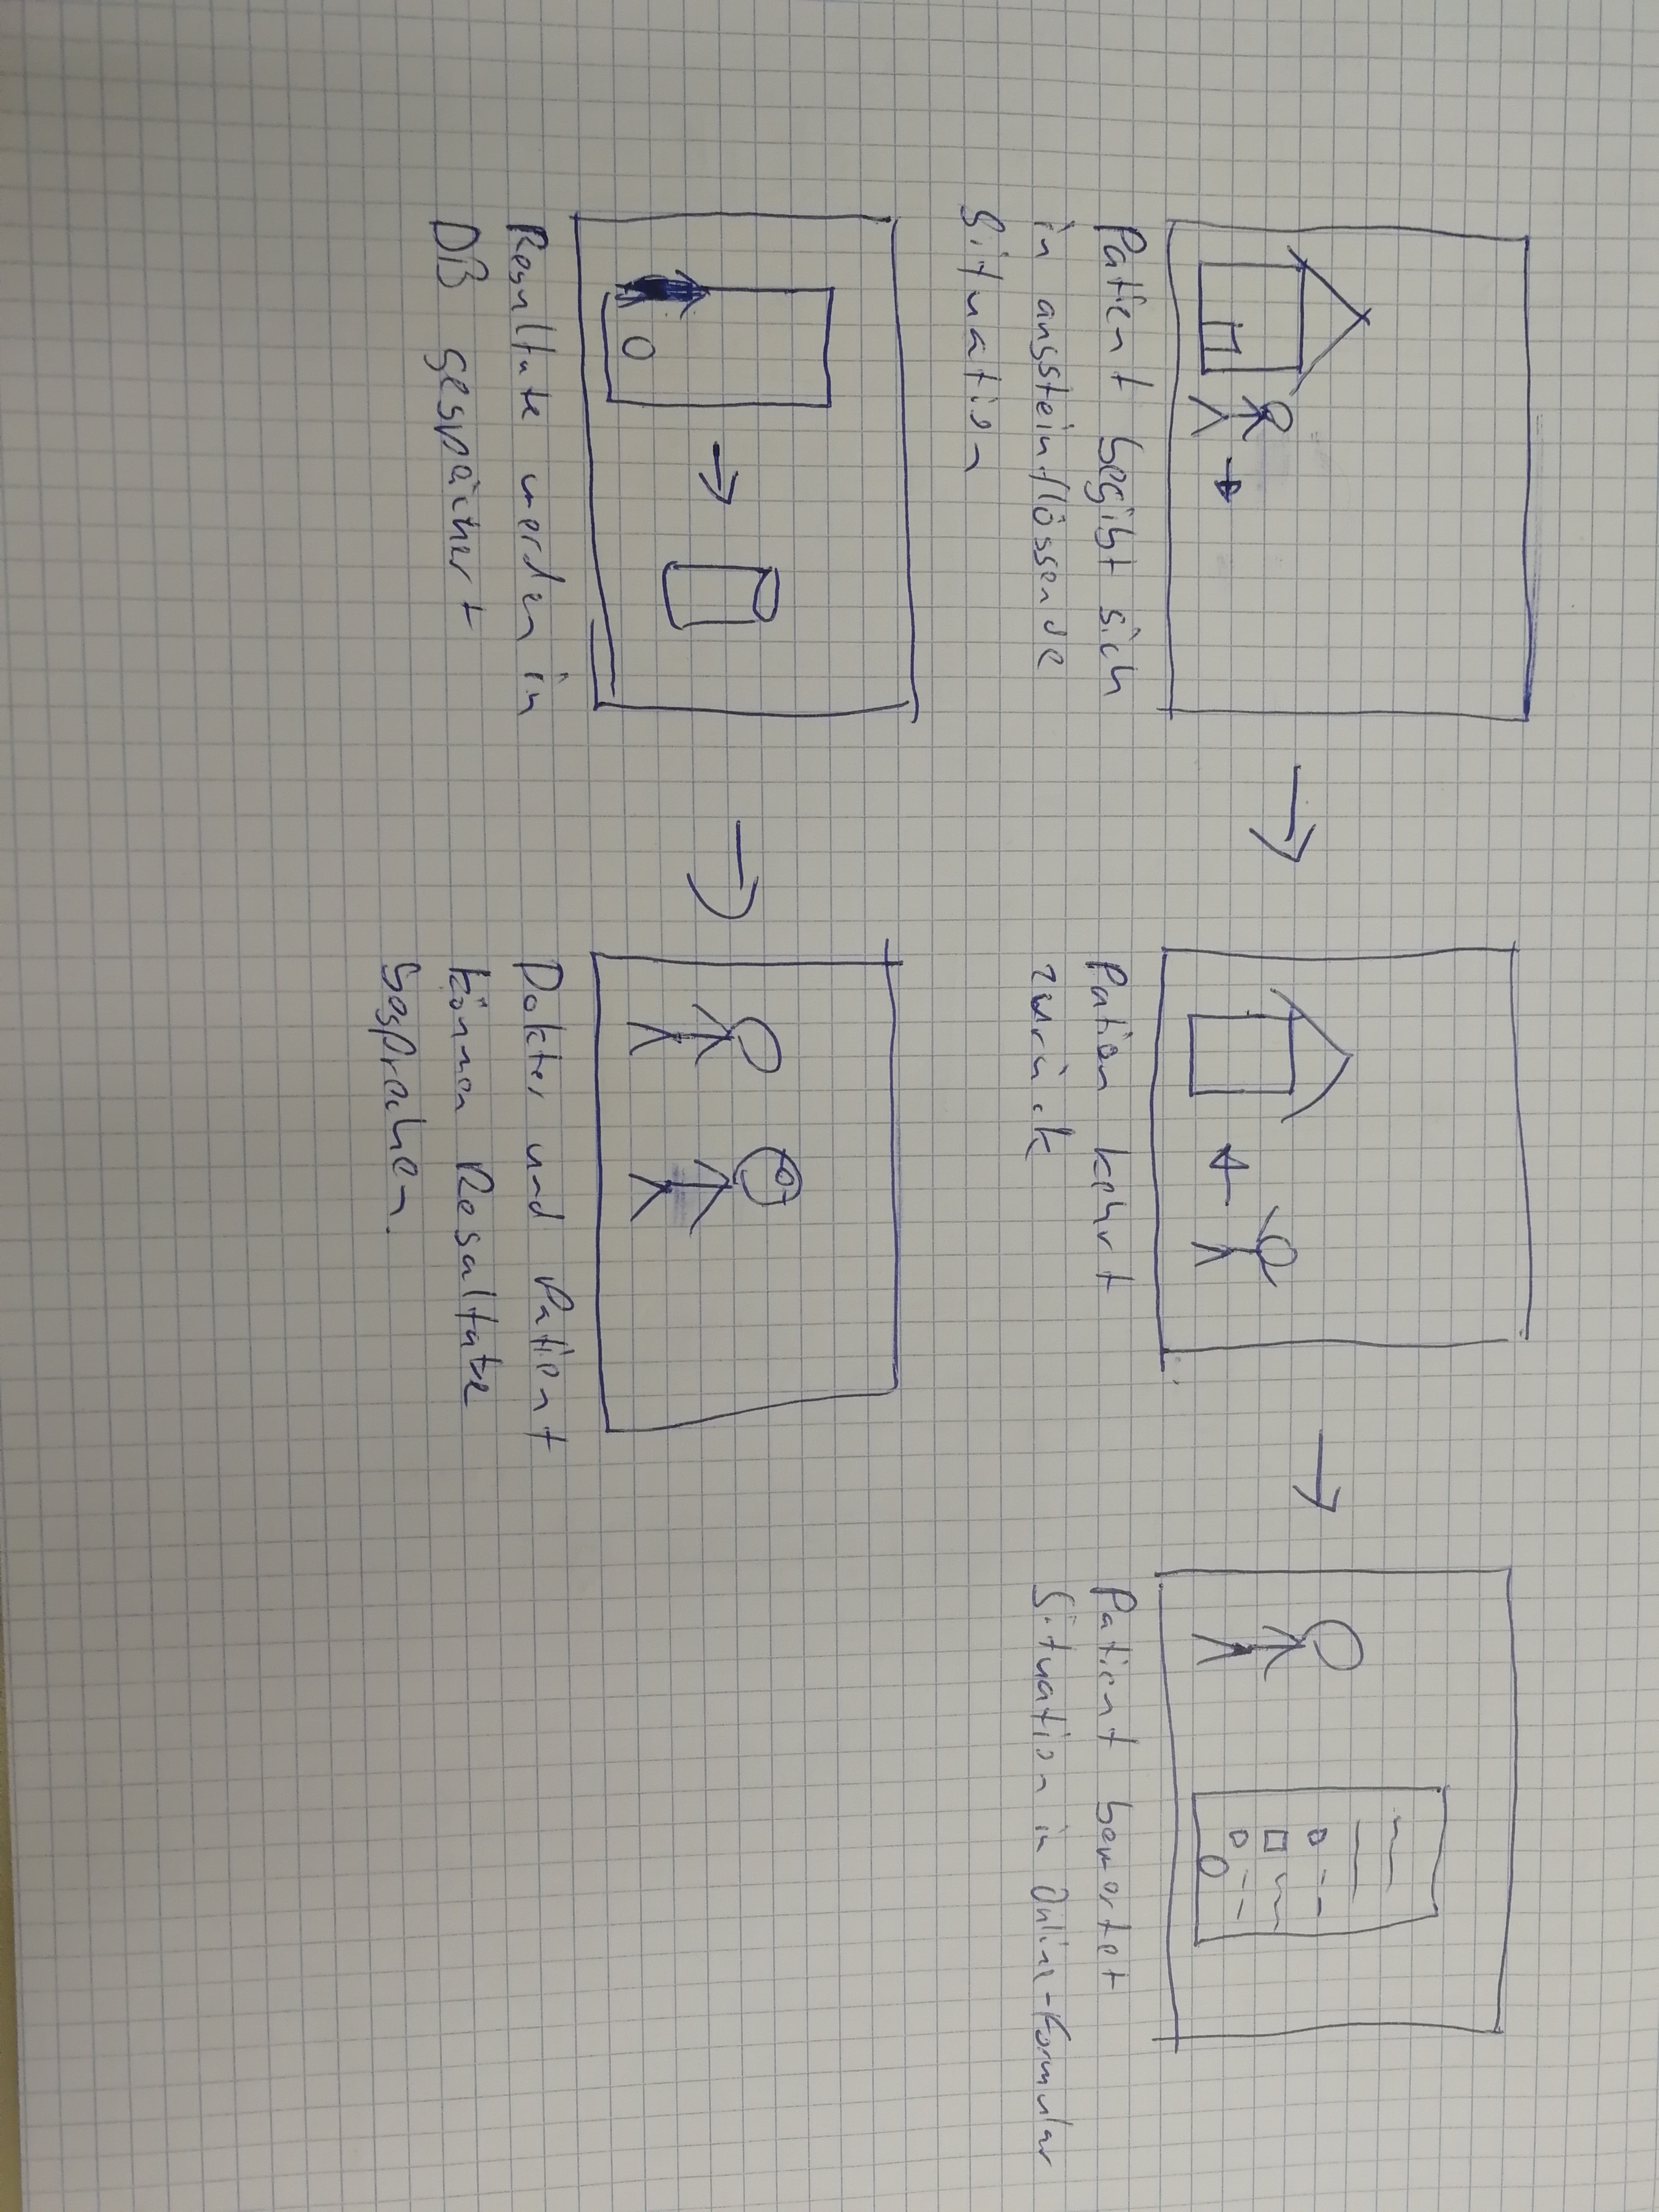 Patient begibt sich
in angsteinflössende
Situation
Patien kehrt
zurück
Patient bewertet
Situation in Online-Formular
Resultate werden in
DB gespeichert
Dokter und Patient
können Resultate
besprechen.